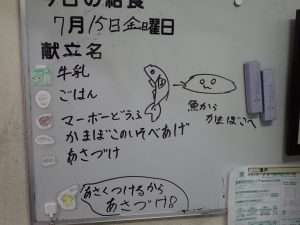 今日の給食
7月15日金曜日
献立名
牛乳
ごはん
マーボーどうふ
かまぼこのいそべあげ
あさづけ
魚から
かまぼこへ
あさくつけるから
あさづけ!!